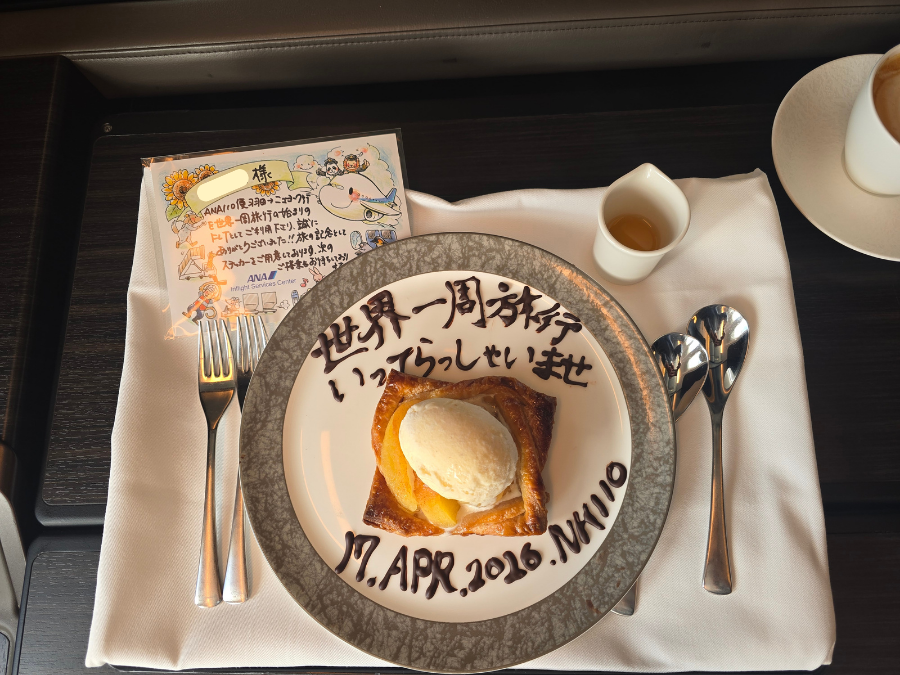 様
ANA110便 ヨーロッパニューヨーク行
を世界一周旅行の始まりの
としてご利用下さり、誠に
ありがとうございました!! 旅の記念として
ステッカーをご用意しております。次の
ご搭乗もお待ちしており
ます
ANA
Inflight Services Center
世界一周旅行
いってらっしゃいませ
17.APR.2026.NH110